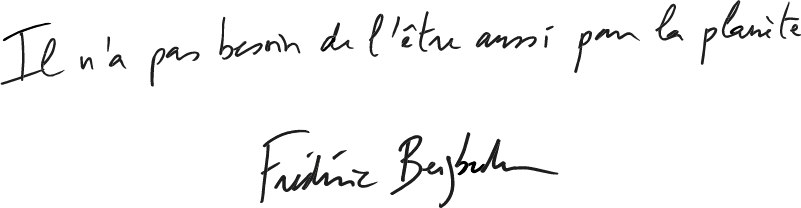 Il n'a pas besoin de l'être aussi pour la planète
Frédéric